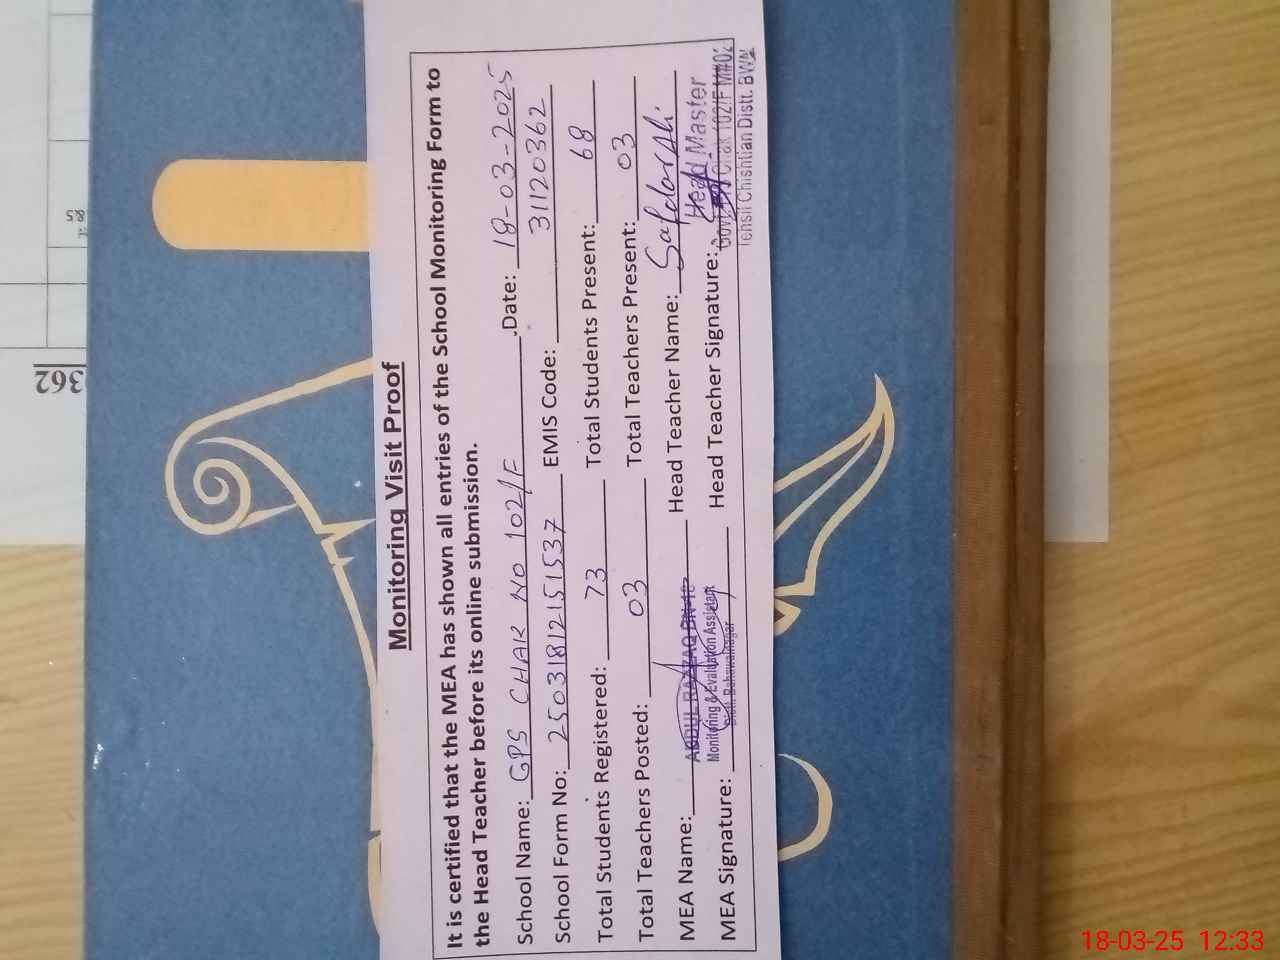 Monitoring Visit Proof
It is certified that the MEA has shown all entries of the School Monitoring Form to
the Head Teacher before its online submission.
School Name: GPS CHAK NO 102/F .Date: 18-03-2025
School Form No: 25031812151537 EMIS Code: 31120362
Total Students Registered: 73 Total Students Present: 68
Total Teachers Posted: 03 Total Teachers Present: 03
MEA Name: ABDUL RAZZAQ Head Teacher Name: Safdar Ali
MEA Signature: Monitoring & Evaluation Assistant Head Teacher Signature: Head Master
Distt. Bahawalnagar
Chak 102/F
Tehsil Chishtian Distt. BWN
362
8.5
18-03-25 12:33